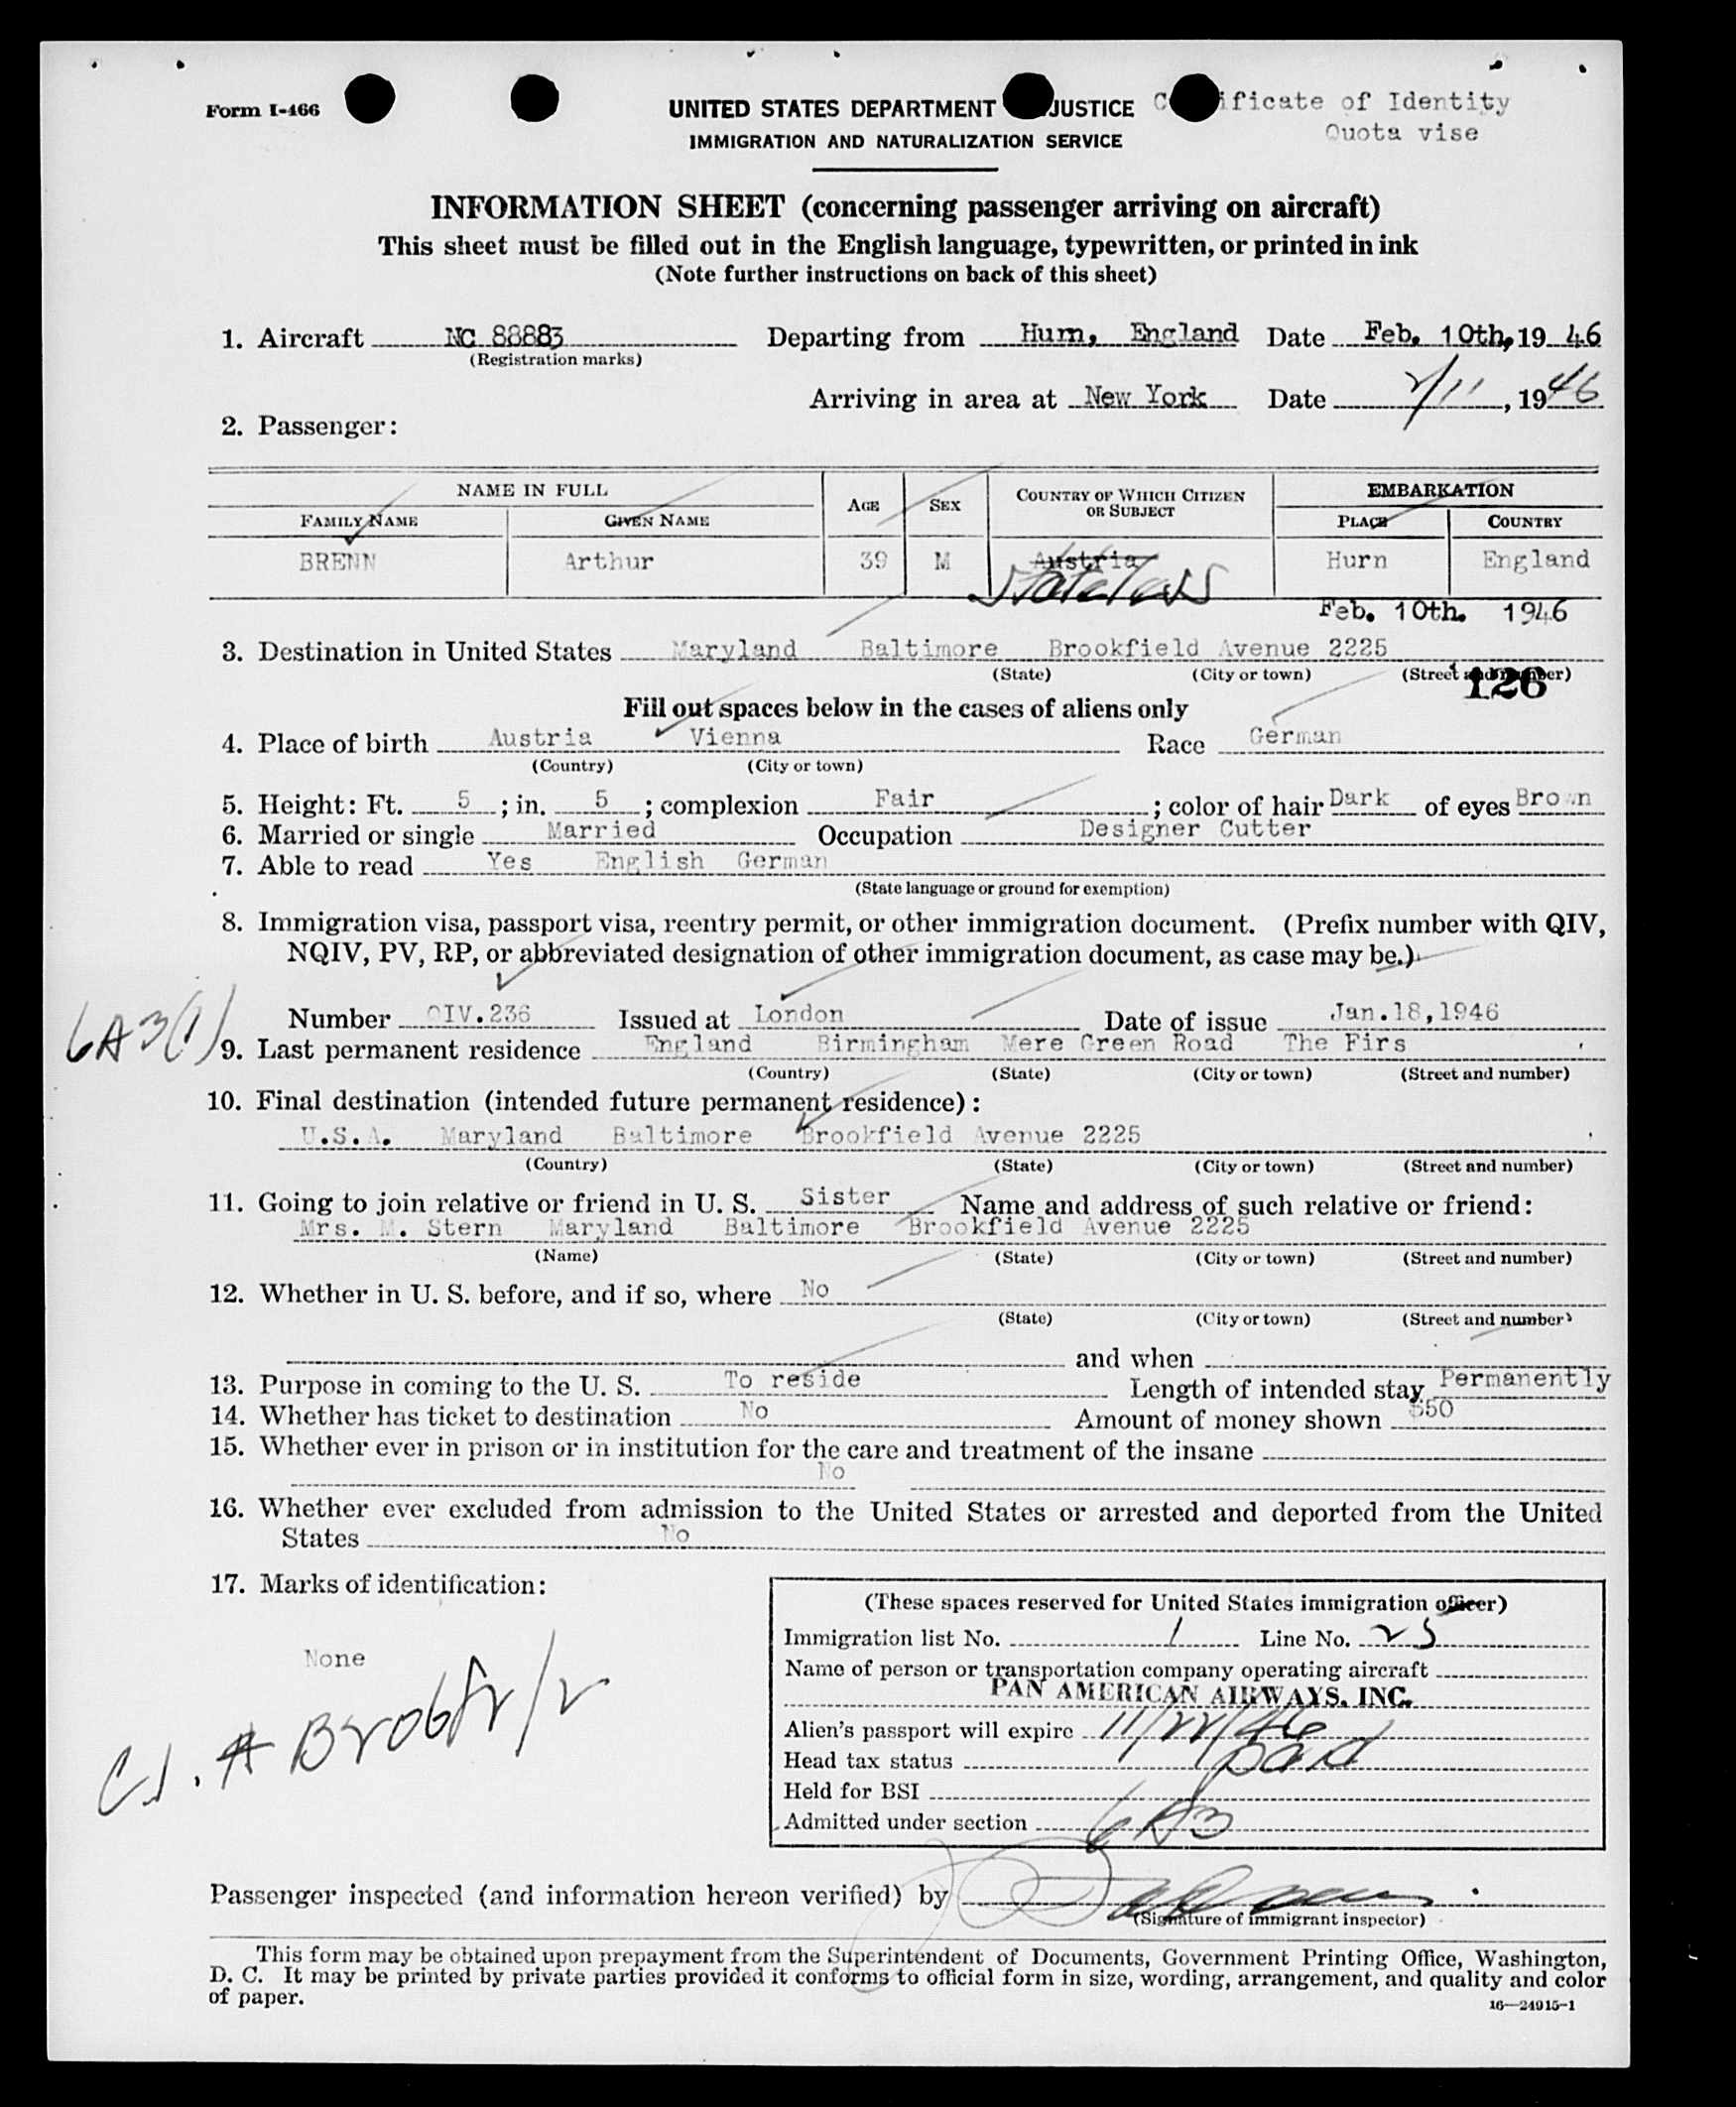 Form I-466
UNITED STATES DEPARTMENT JUSTICE
IMMIGRATION AND NATURALIZATION SERVICE
ificate of Identity
Quota vise
INFORMATION SHEET (concerning passenger arriving on aircraft)
This sheet must be filled out in the English language, typewritten, or printed in ink
(Note further instructions on back of this sheet)
1. Aircraft NC 88883 Departing from Hurn, England Date Feb. 10th, 19 46
(Registration marks)
Arriving in area at New York Date 2/11, 1946
2. Passenger:
NAME IN FULL AGE SEX COUNTRY OF WHICH CITIZEN OR SUBJECT EMBARKATION
FAMILY NAME GIVEN NAME PLACE COUNTRY
BRENN Arthur 39 M Austria Hurn England
Stateless
Feb. 10th. 1946
3. Destination in United States Maryland Baltimore Brookfield Avenue 2225
(State) (City or town) (Street and number)
126
Fill out spaces below in the cases of aliens only
4. Place of birth Austria Vienna Race German
(Country) (City or town)
5. Height: Ft. 5; in. 5; complexion Fair; color of hair Dark of eyes Brown
6. Married or single Married Occupation Designer Cutter
7. Able to read Yes English German
(State language or ground for exemption)
8. Immigration visa, passport visa, reentry permit, or other immigration document. (Prefix number with QIV,
NQIV, PV, RP, or abbreviated designation of other immigration document, as case may be.)
Number QIV.236 Issued at London Date of issue Jan.18,1946
6A3(1)
9. Last permanent residence England Birmingham Mere Green Road The Firs
(Country) (State) (City or town) (Street and number)
10. Final destination (intended future permanent residence):
U.S.A. Maryland Baltimore Brookfield Avenue 2225
(Country) (State) (City or town) (Street and number)
11. Going to join relative or friend in U. S. Sister Name and address of such relative or friend:
Mrs. M. Stern Maryland Baltimore Brookfield Avenue 2225
(Name) (State) (City or town) (Street and number)
12. Whether in U. S. before, and if so, where No
(State) (City or town) (Street and number)
and when
13. Purpose in coming to the U. S. To reside Length of intended stay Permanently
14. Whether has ticket to destination No Amount of money shown $50
15. Whether ever in prison or in institution for the care and treatment of the insane
No
16. Whether ever excluded from admission to the United States or arrested and deported from the United
States No
17. Marks of identification:
None
(These spaces reserved for United States immigration officer)
Immigration list No. 1 Line No. 25
Name of person or transportation company operating aircraft
PAN AMERICAN AIRWAYS, INC.
Alien's passport will expire 11/22/46
Head tax status paid
Held for BSI
Admitted under section 6A3
Passenger inspected (and information hereon verified) by
(Signature of immigrant inspector)
This form may be obtained upon prepayment from the Superintendent of Documents, Government Printing Office, Washington,
D. C. It may be printed by private parties provided it conforms to official form in size, wording, arrangement, and quality and color
of paper.
16—24915-1